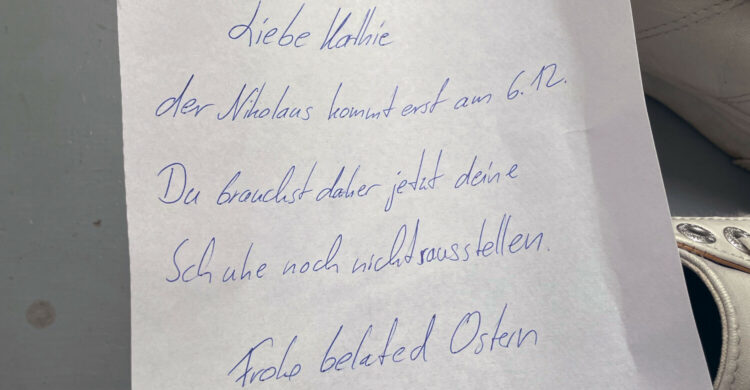 Liebe Kathie
der Nikolaus kommt erst am 6.12.
Du brauchst daher jetzt deine
Schuhe noch nicht rausstellen.
Frohe belated Ostern